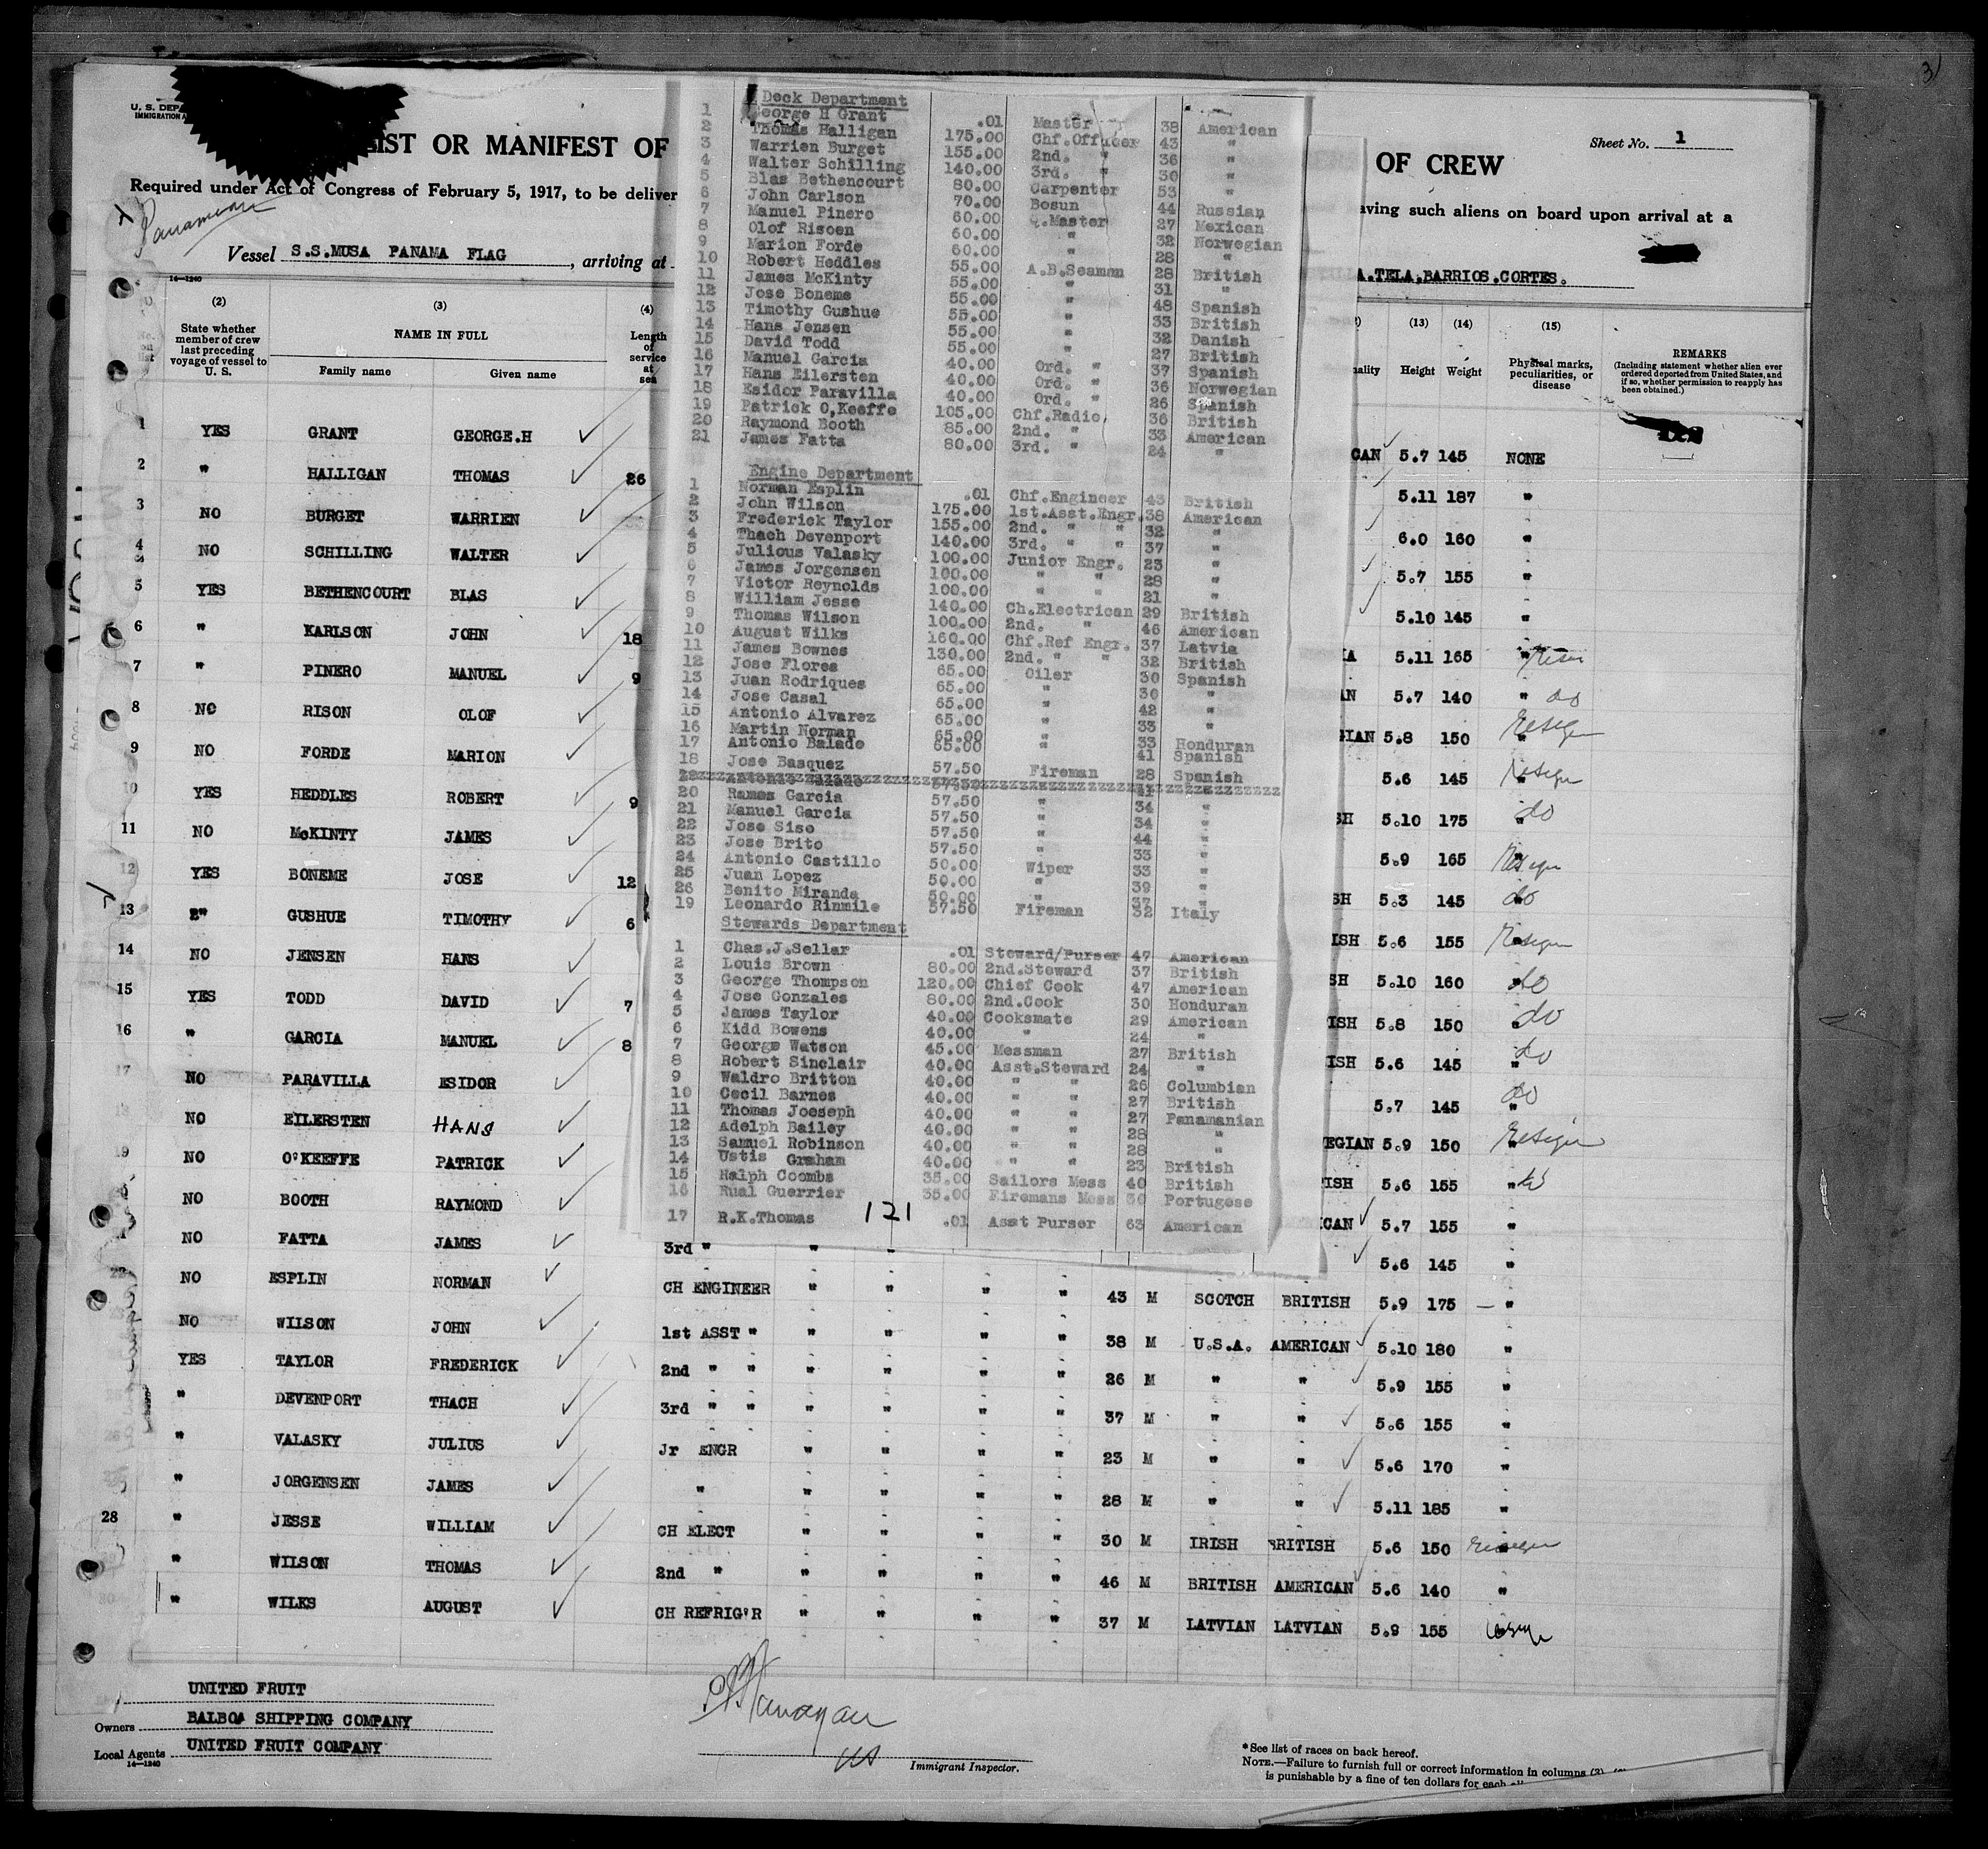 U. S. DEPA
IMMIGRATION A
IST OR MANIFEST OF
OF CREW
Sheet No. 1
Required under Act of Congress of February 5, 1917, to be deliver
aving such aliens on board upon arrival at a
Panamanian
Vessel S.S.MUSA PANAMA FLAG, arriving at
A.TELA.BARRIOS.CORTES.
14-1240
(2) (3) (4) (13) (14) (15)
State whether member of crew last preceding voyage of vessel to U. S.
NAME IN FULL
Family name Given name
Length of service at sea
ality Height Weight Physical marks, peculiarities, or disease
REMARKS
(Including statement whether alien ever ordered deported from United States, and if so, whether permission to reapply has been obtained.)
Deck Department
1 George H Grant .01 Master 38 American
2 Thomas Halligan 175.00 Chf.Officer 43 "
3 Warrien Burget 155.00 2nd. " 36 "
4 Walter Schilling 140.00 3rd. " 30 "
5 Blas Bethencourt 80.00 Carpenter 53 "
6 John Carlson 70.00 Bosun 44 Russian
7 Manuel Pinero 60.00 Q.Master 27 Mexican
8 Olof Risoen 60.00 " 32 Norwegian
9 Marion Forde 60.00 " 28 "
10 Robert Heddles 55.00 A.B.Seaman 28 British
11 James McKinty 55.00 " 31 "
12 Jose Boneme 55.00 " 48 Spanish
13 Timothy Gushue 55.00 " 33 British
14 Hans Jensen 55.00 " 32 Danish
15 David Todd 55.00 " 27 British
16 Manuel Garcia 40.00 Ord. " 37 Spanish
17 Hans Eilersten 40.00 Ord. " 36 Norwegian
18 Esidor Paravilla 40.00 Ord. " 26 Spanish
19 Patrick O,Keeffe 105.00 Chf.Radio 36 British
20 Raymond Booth 85.00 2nd. " 33 American
21 James Fatta 80.00 3rd. " 24 "
Engine Department
1 Norman Esplin .01 Chf.Engineer 43 British
2 John Wilson 175.00 1st.Asst.Engr. 38 American
3 Frederick Taylor 155.00 2nd. " " 32 "
4 Thach Devenport 140.00 3rd. " " 37 "
5 Julious Valasky 100.00 Junior Engr. 23 "
6 James Jorgensen 100.00 " " 28 "
7 Victor Reynolds 100.00 " " 21 "
8 William Jesse 140.00 Ch.Electrican 29 British
9 Thomas Wilson 100.00 2nd. " 46 American
10 August Wilks 160.00 Chf.Ref Engr. 37 Latvia
11 James Bownes 130.00 2nd. " " 32 British
12 Jose Flores 65.00 Oiler 30 Spanish
13 Juan Rodriques 65.00 " 30 "
14 Jose Casal 65.00 " 42 "
15 Antonio Alvarez 65.00 " 33 "
16 Martin Norman 65.00 " 33 Honduran
17 Antonio Balado 65.00 " 41 Spanish
18 Jose Basquez 57.50 Fireman 28 Spanish
20 Rames Garcia 57.50 " 34 "
21 Manuel Garcia 57.50 " 34 "
22 Jose Siso 57.50 " 44 "
23 Jose Brito 57.50 " 33 "
24 Antonio Castillo 50.00 Wiper 33 "
25 Juan Lopez 50.00 " 39 "
26 Benito Miranda 50.00 " 37 "
19 Leonardo Rinmile 57.50 Fireman 32 Italy
Stewards Department
1 Chas.J.Sellar .01 Steward/Purser 47 American
2 Louis Brown 80.00 2nd.Steward 37 British
3 George Thompson 120.00 Chief Cook 47 American
4 Jose Gonzales 80.00 2nd.Cook 30 Honduran
5 James Taylor 40.00 Cooksmate 29 American
6 Kidd Bowens 40.00 " 24 "
7 George Watson 45.00 Messman 27 British
8 Robert Sinclair 40.00 Asst.Steward 24 "
9 Waldro Britton 40.00 " " 26 Columbian
10 Cecil Barnes 40.00 " " 27 British
11 Thomas Joeseph 40.00 " " 27 Panamanian
12 Adelph Bailey 40.00 " " 28 "
13 Samuel Robinson 40.00 " " 28 "
14 Ustis Graham 40.00 " " 23 British
15 Ralph Coombs 35.00 Sailors Mess 40 British
16 Rual Guerrier 35.00 Firemans Mess 30 Portugese
17 R.K.Thomas 121 .01 Asst Purser 63 American
1 YES GRANT GEORGE.H CAN 5.7 145 NONE
2 " HALLIGAN THOMAS 26 5.11 187 "
3 NO BURGET WARRIEN 6.0 160 "
4 NO SCHILLING WALTER 5.7 155 "
5 YES BETHENCOURT BLAS 5.10 145 "
6 " KARLSON JOHN 18 IA 5.11 165 "
7 " PINERO MANUEL 9 AN 5.7 140 " do
8 NO RISON OLOF GIAN 5.8 150 "
9 NO FORDE MARION 5.6 145 "
10 YES HEDDLES ROBERT 9 SH 5.10 175 " do
11 NO McKINTY JAMES 5.9 165 "
12 YES BONEME JOSE 12 SH 5.3 145 " do
13 " GUSHUE TIMOTHY 6 ISH 5.6 155 "
14 NO JENSEN HANS SH 5.10 160 " do
15 YES TODD DAVID 7 ISH 5.8 150 " do
16 " GARCIA MANUEL 8 ISH 5.6 145 " do
17 NO PARAVILLA ESIDOR 5.7 145 " do
18 NO EILERSTEN HANS EGIAN 5.9 150 "
19 NO O'KEEFFE PATRICK ISH 5.6 155 " do
NO BOOTH RAYMOND ICAN 5.7 155 "
NO FATTA JAMES 3rd " " " 5.6 145 "
22 NO ESPLIN NORMAN CH ENGINEER " " " " 43 M SCOTCH BRITISH 5.9 175 "
NO WILSON JOHN 1st ASST " " " " " 38 M U.S.A. AMERICAN 5.10 180 "
YES TAYLOR FREDERICK 2nd " " " " " " 26 M " " 5.9 155 "
" DEVENPORT THACH 3rd " " " " " " 37 M " " 5.6 155 "
" VALASKY JULIUS Jr ENGR " " " " 23 M " " 5.6 170 "
" JORGENSEN JAMES " " " " " 28 M " " 5.11 185 "
28 " JESSE WILLIAM CH ELECT " " " " 30 M IRISH BRITISH 5.6 150
" WILSON THOMAS 2nd " " " " " 46 M BRITISH AMERICAN 5.6 140 "
" WILKS AUGUST CH REFRIG'R " " " " 37 M LATVIAN LATVIAN 5.9 155
UNITED FRUIT
Owners BALBOA SHIPPING COMPANY
Local Agents UNITED FRUIT COMPANY
14-1240
Immigrant Inspector.
*See list of races on back hereof.
NOTE.—Failure to furnish full or correct information in columns (3)
is punishable by a fine of ten dollars for each